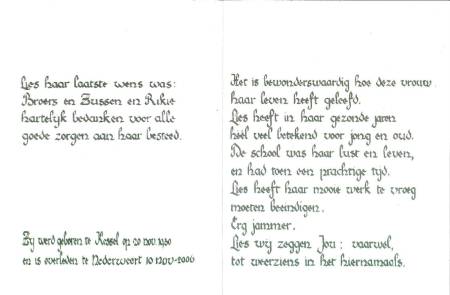 Lies haar laatste wens was:
Broers en Zussen en Rikie
hartelyk bedanken voor alle
goede zorgen aan haar besteed.
Zy werd geboren te Kessel op 20 nov.
en is overleden te Nederweert 10 nov-2006
Het is bewonderswaardig hoe deze vrouw
haar leven heeft geleefd.
Lies heeft in haar gezonde jaren
heel veel betekend voor jong en oud.
De school was haar lust en leven,
en had toen een prachtige tyd.
Lies heeft haar mooie werk te vroeg
moeten beeindigen.
Erg jammer.
Lies wy zeggen Jou: vaarwel,
tot weerziens in het hiernamaals.